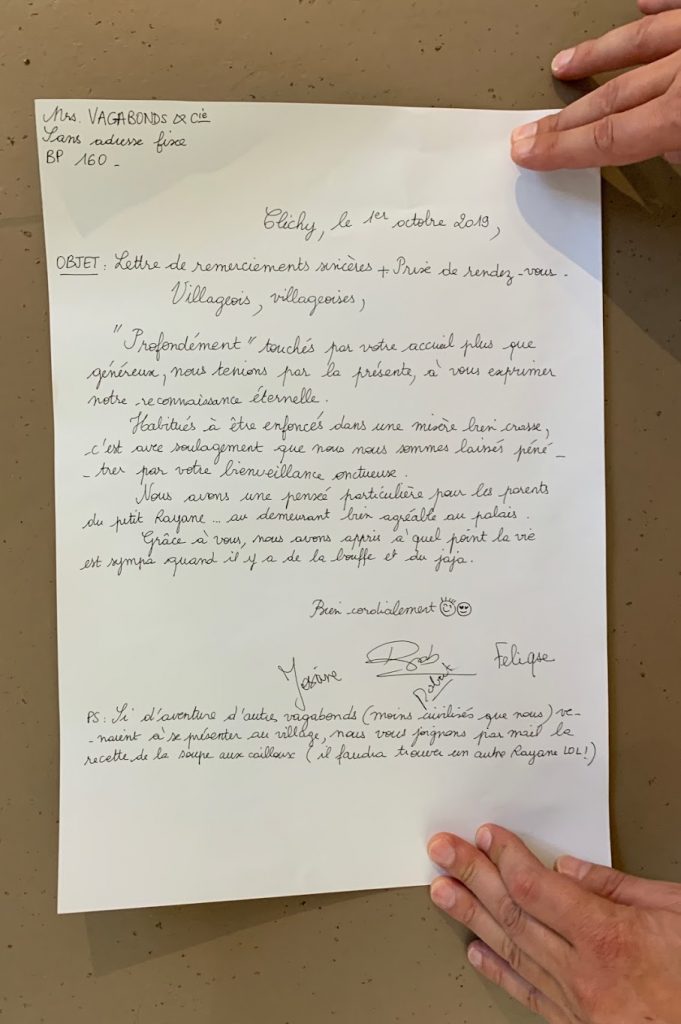 Mrs. VAGABONDS & Cie
Sans adresse fixe
BP 160 -
Clichy, le 1er octobre 2019,
OBJET : Lettre de remerciements sincères + Prise de rendez-vous -
Villageois, villageoises,
"Profondément" touchés par votre accueil plus que
généreux, nous tenions par la présente, à vous exprimer
notre reconnaissance éternelle.
Habitués à être enfoncés dans une misère bien crasse,
c'est avec soulagement que nous nous sommes laissés péné-
-trer par votre bienveillance onctueuse.
Nous avons une pensée particulière pour les parents
du petit Rayane ... au demeurant bien agréable au palais.
Grâce à vous, nous avons appris à quel point la vie
est sympa quand il y a de la bouffe et du jaja.
Bien cordialement
Bob Felique
Robert
PS : Si d'aventure d'autres vagabonds (moins civilisés que nous) ve-
-naient à se présenter au village, nous vous joignons par mail la
recette de la soupe aux cailloux (il faudra trouver un autre Rayane LOL!)